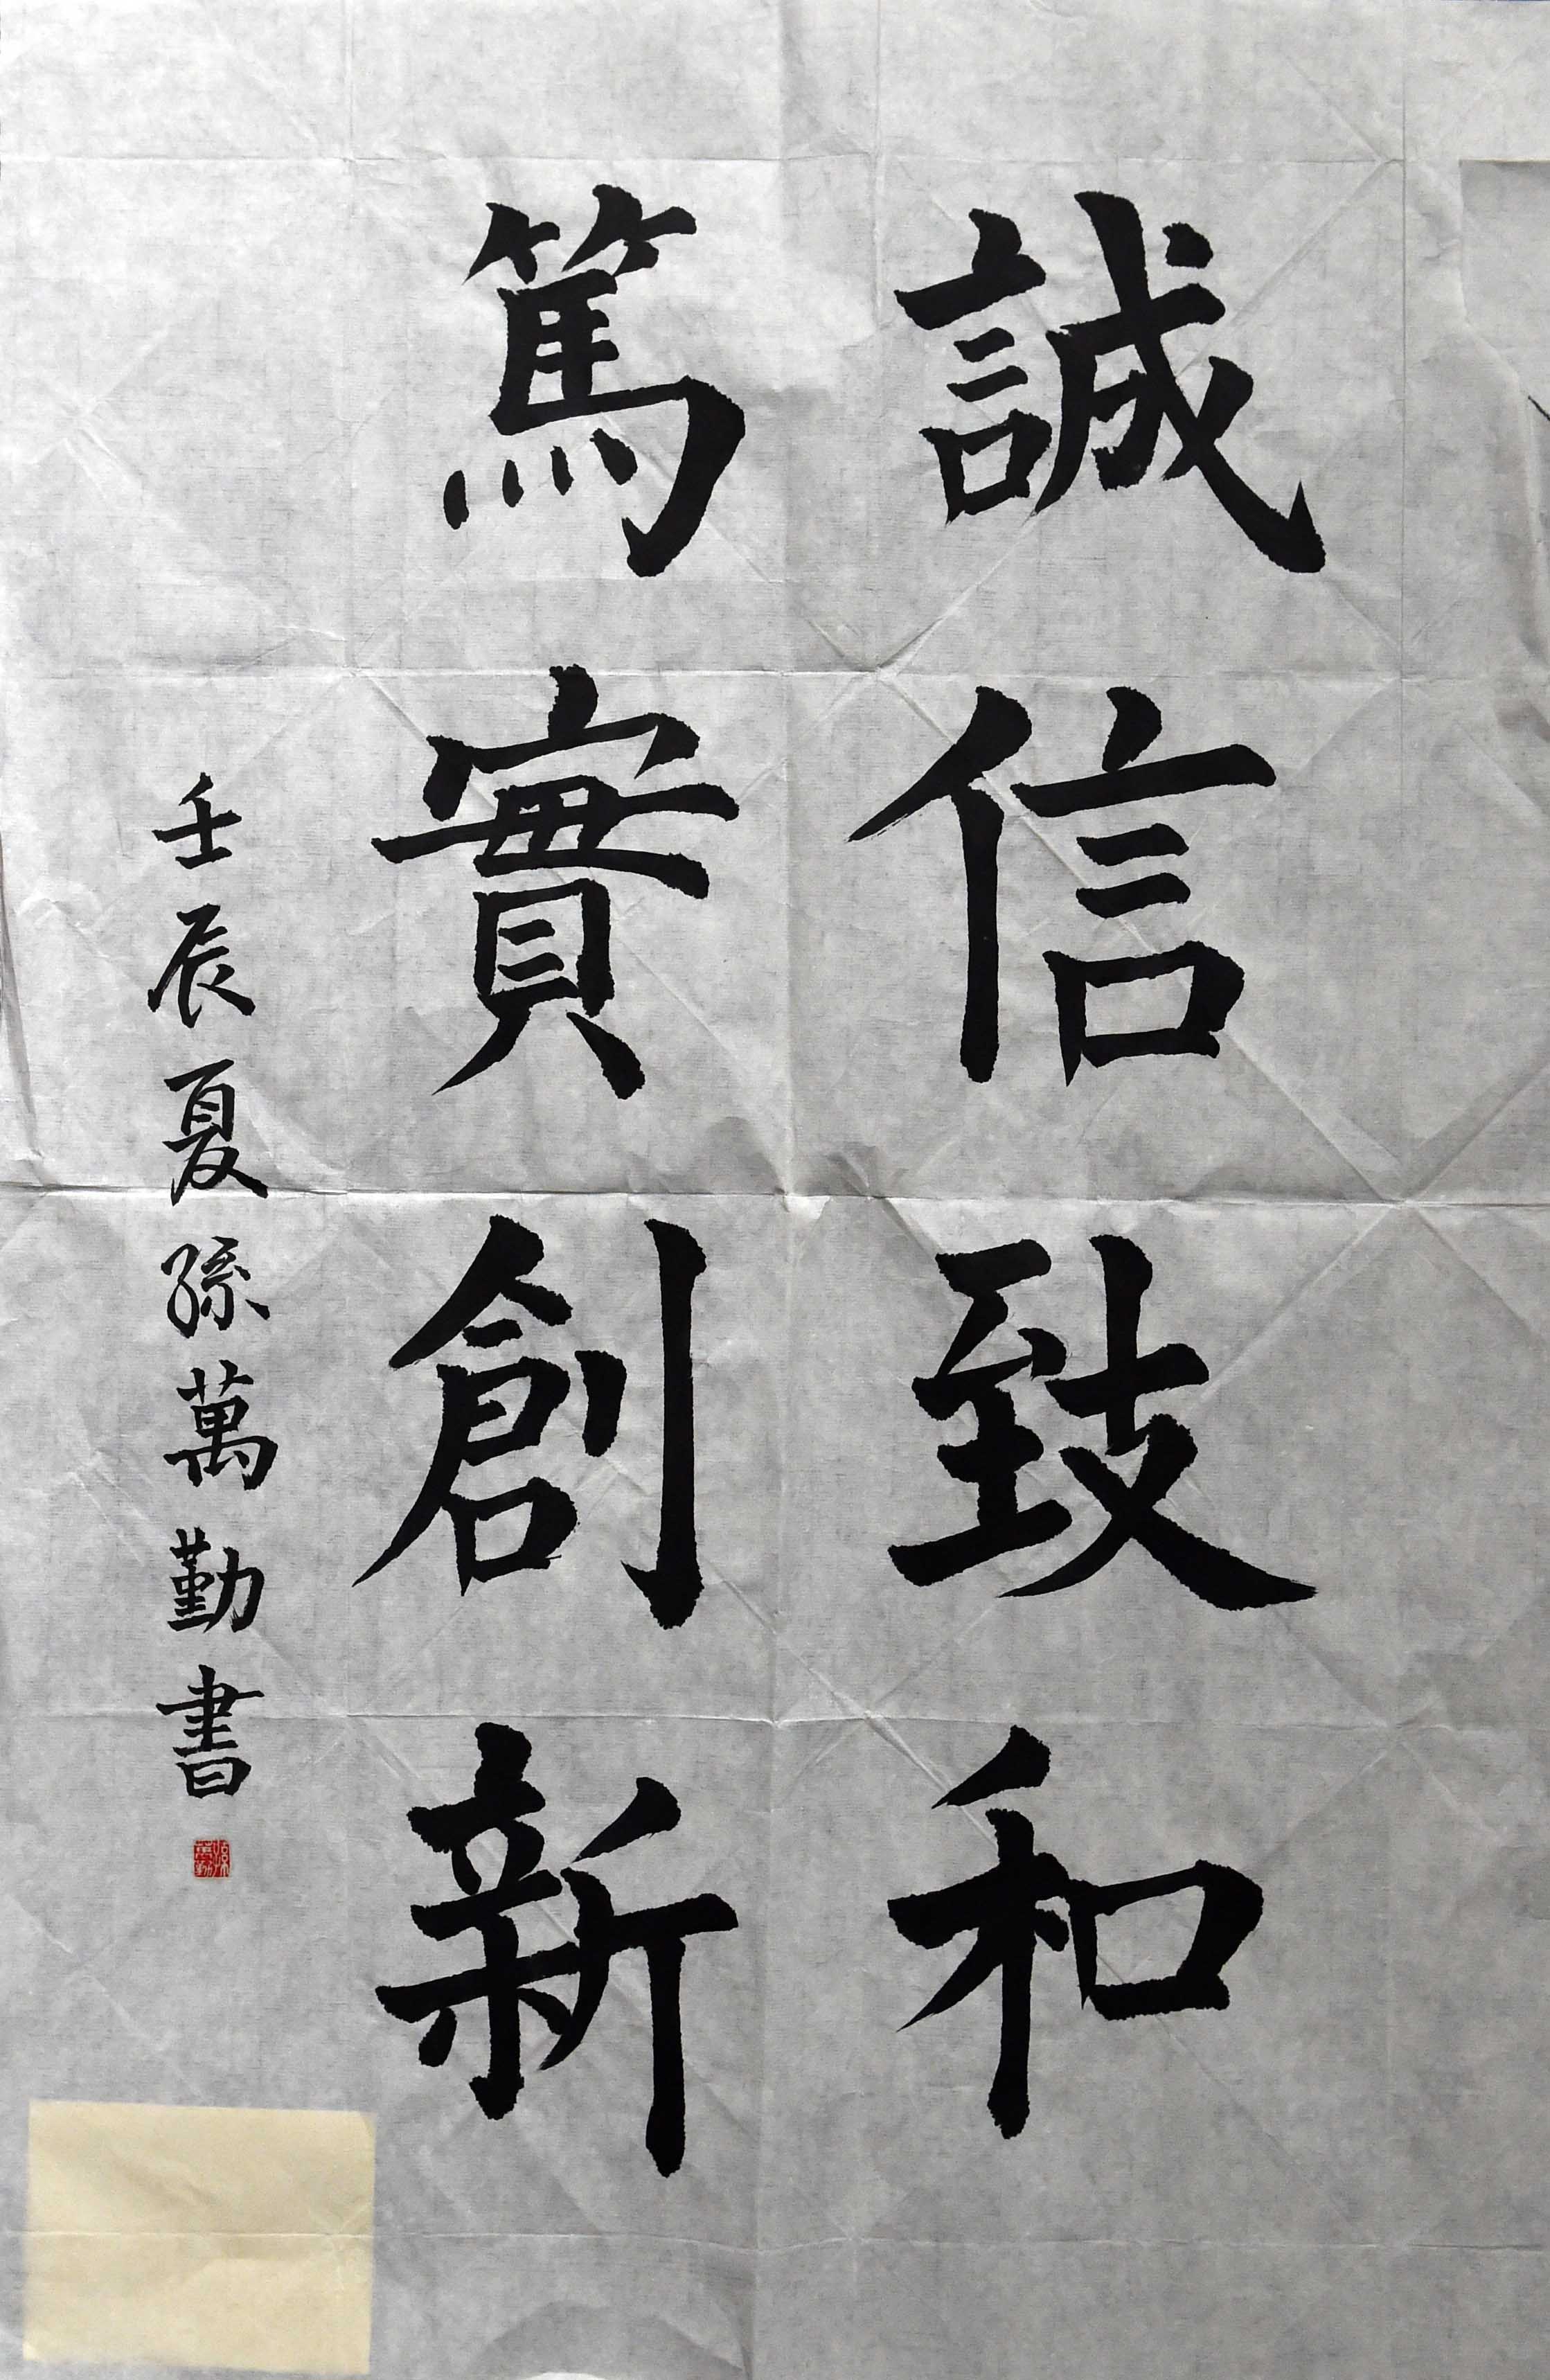 誠信致和
篤實創新
壬辰夏孫萬勤書
孫萬勤